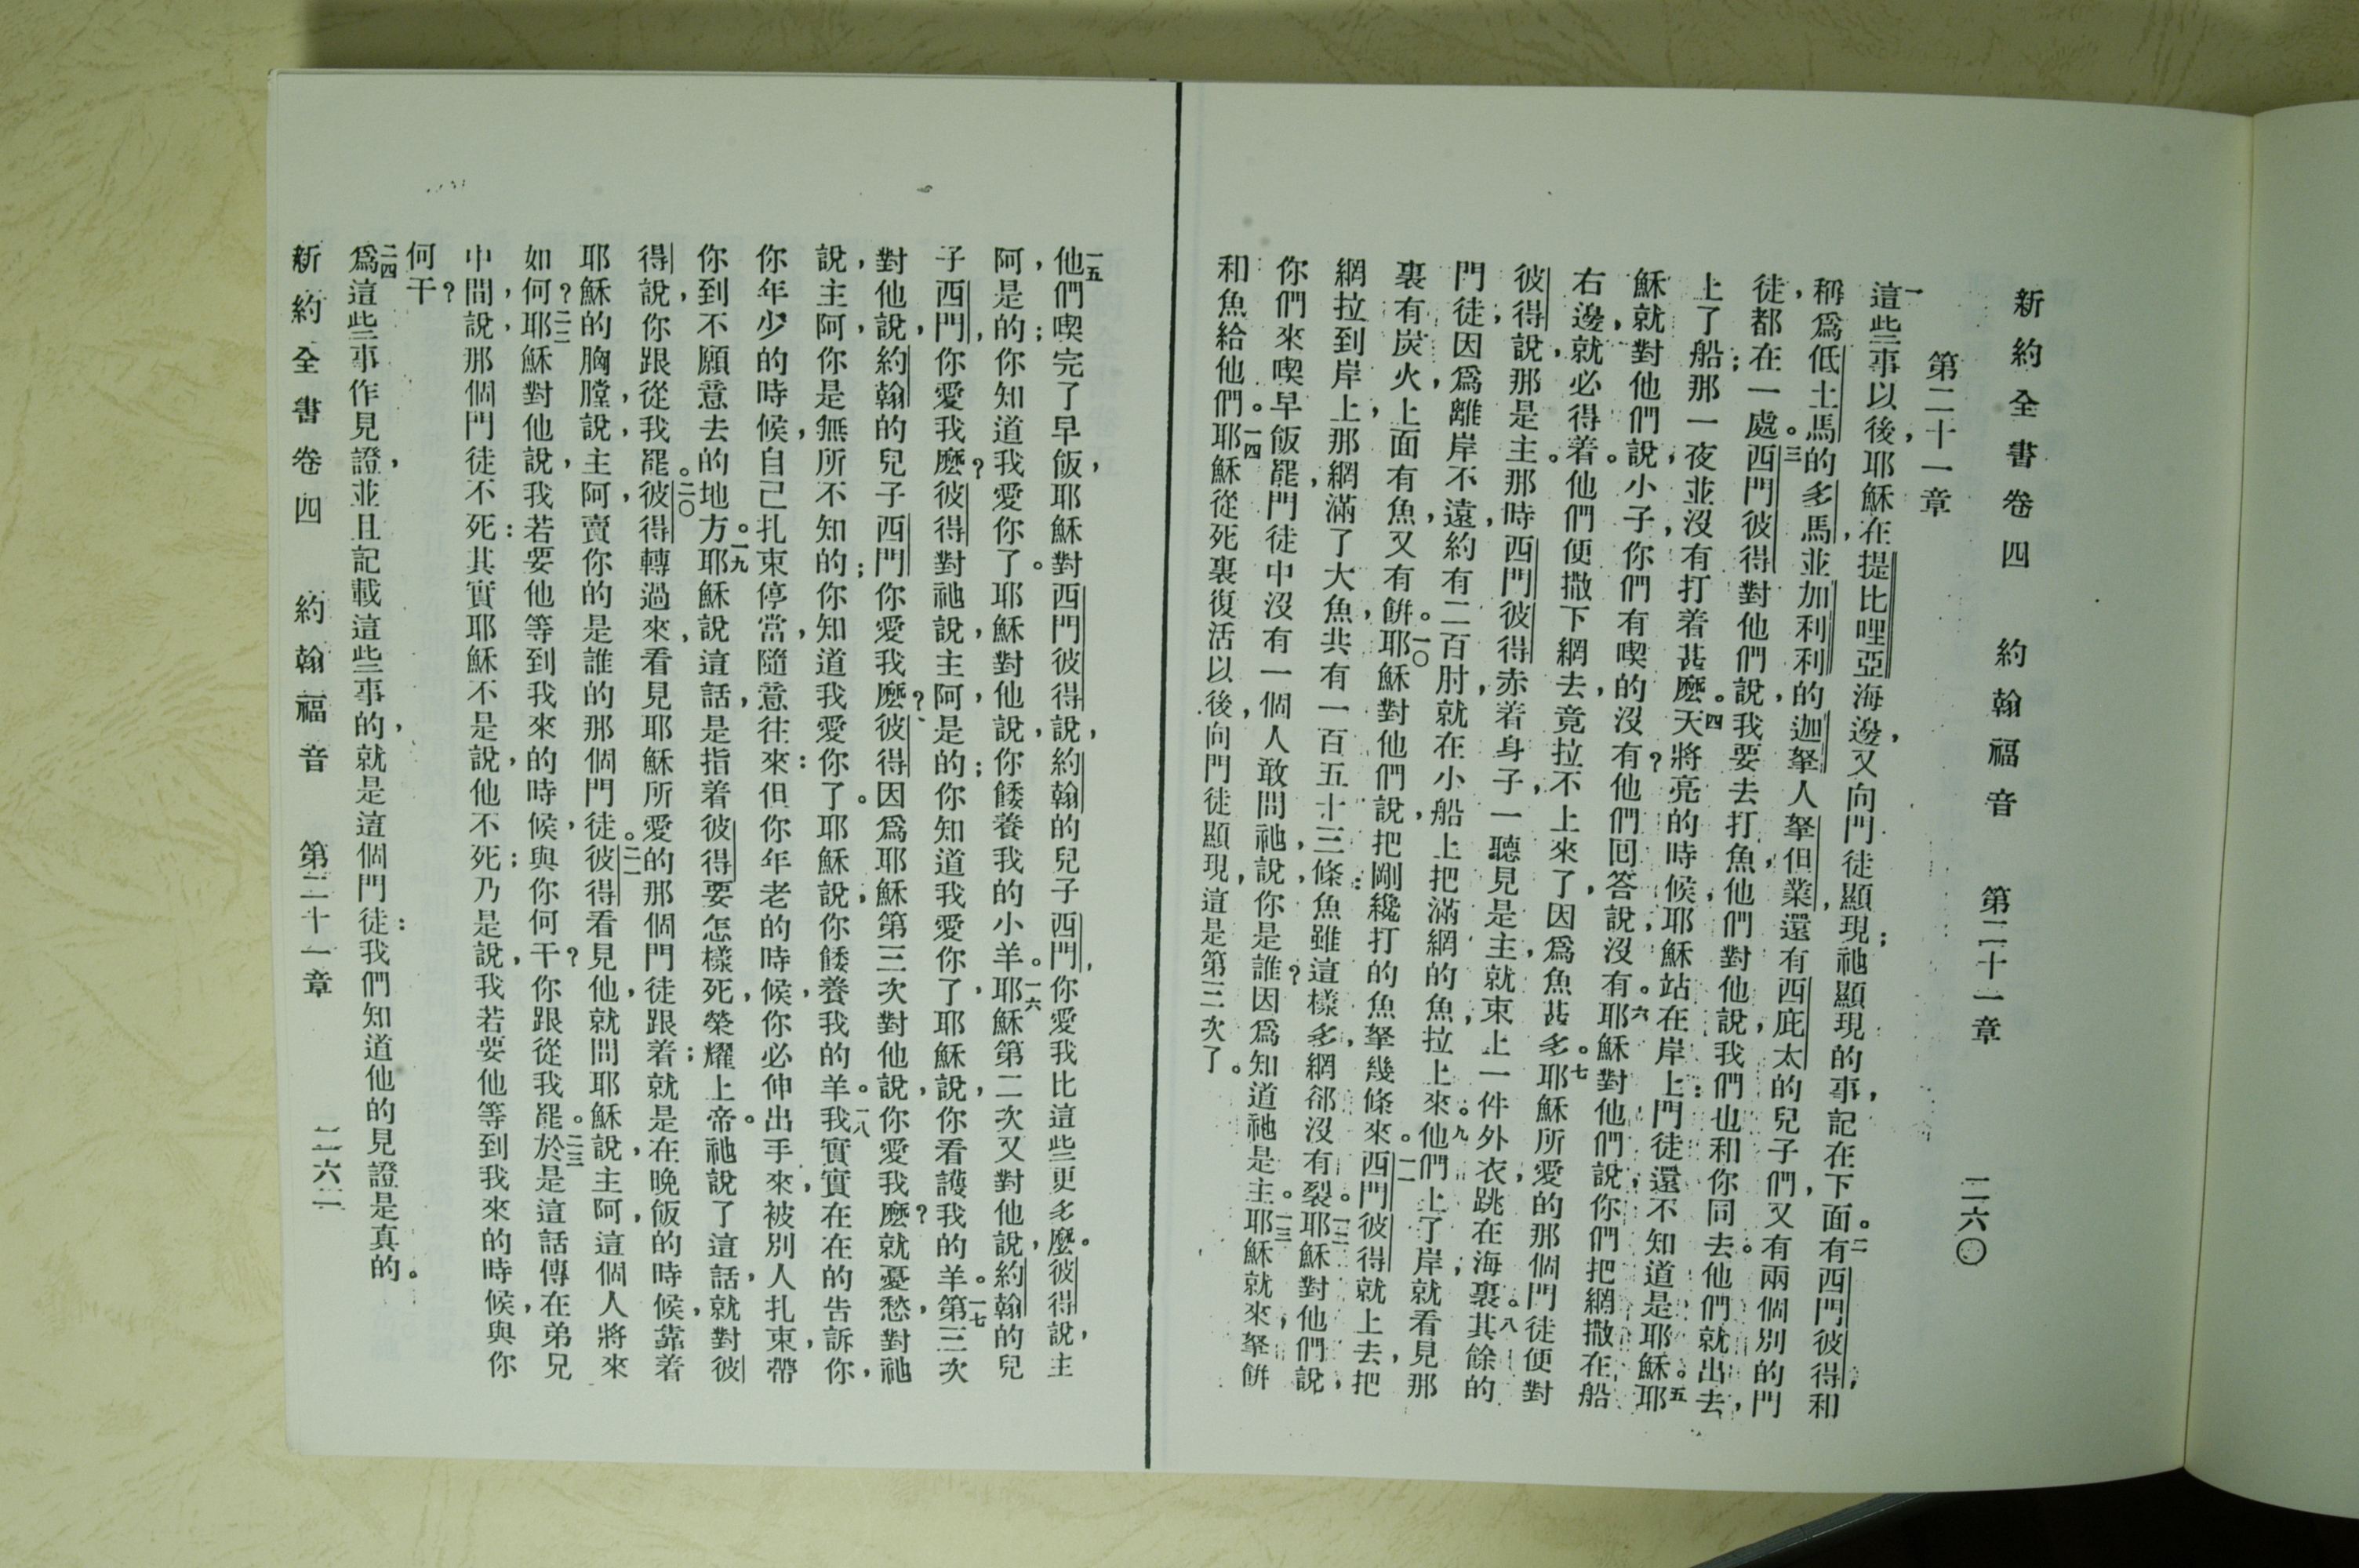 新約全書卷四　約翰福音　第二十一章　二六〇
第二十一章
一這些事以後，耶穌在提比哩亞海邊，又向門徒顯現；祂顯現的事，記在下面。二有西門彼得，和
稱爲低土馬的多馬，並加利利的迦拏人拏但業，還有西庇太的兒子們，又有兩個別的門
徒，都在一處。三西門彼得對他們說，我要去打魚，他們對他說，我們也和你同去。他們就出去，
上了船；那一夜並沒有打着甚麽。四天將亮的時候，耶穌站在岸上：門徒還不知道是耶穌。五耶
穌就對他們說，小子，你們有喫的沒有？他們回答說，沒有。六耶穌對他們說，你們把網撒在船
右邊，就必得着。他們便撒下網去，竟拉不上來了，因爲魚甚多。七耶穌所愛的那個門徒，便對
彼得說，那是主。那時西門彼得赤着身子，一聽見是主，就束上一件外衣，跳在海裏。八其餘的
門徒；因爲離岸不遠，約有二百肘，就在小船上把滿網的魚，拉上來。九他們上了岸；就看見那
裏有炭火，上面有魚，又有餅。一〇耶穌對他們說，把剛纔打的魚拏幾條來。一一西門彼得就上去，把
網拉到岸上，那網滿了大魚，共有一百五十三條：魚雖這樣多，網郤沒有裂。一二耶穌對他們說，
你們來喫早飯罷，門徒中沒有一個人敢問祂，說，你是誰？因爲知道祂是主。一三耶穌就來，拏餅
和魚給他們。一四耶穌從死裏復活以後，向門徒顯現，這是第三次了。
一五他們喫完了早飯，耶穌對西門彼得說，約翰的兒子西門，你愛我比這些更多麽。彼得說，主
阿，是的；你知道我愛你了。耶穌對他說，你餧養我的小羊。一六耶穌第二次又對他說，約翰的兒
子西門，你愛我麽？彼得對祂說，主阿，是的；你知道我愛你了，耶穌說，你看護我的羊。一七第三次
對他說，約翰的兒子西門你愛我麽？彼得因爲耶穌第三次對他說，你愛我麽？就憂愁，對祂
說，主阿，你是無所不知的；你知道我愛你了。耶穌說，你餧養我的羊。一八我實實在在的告訴你，
你年少的時候，自己扎束停當，隨意往來：但你年老的時候，你必伸出手來，被別人扎束，帶
你到不願意去的地方。一九耶穌說這話，是指着彼得要怎樣死，榮耀上帝。祂說了這話，就對彼
得說，你跟從我罷。二〇彼得轉過來，看見耶穌所愛的那個門徒跟着；就是在晚飯的時候，靠着
耶穌的胸膛，說，主阿，賣你的是誰的那個門徒。二一彼得看見他，就問耶穌說，主阿，這個人將來
如何？二二耶穌對他說，我若要他等到我來的時候，與你何干？你跟從我罷。二三於是這話傳在弟兄
中間，說，那個門徒不死：其實耶穌不是說，他不死；乃是說，我若要他等到我來的時候，與你
何干？
二四爲這些事作見證，並且記載這些事的，就是這個門徒：我們知道他的見證是真的。
新約全書卷四　約翰福音　第二十一章　二六二